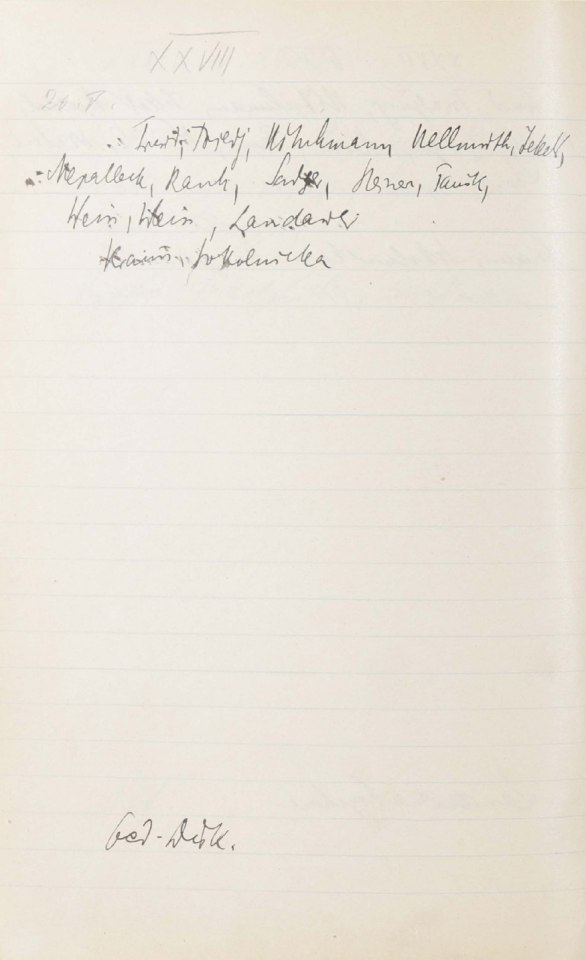 XXVIII
20. V.
Freud, Friedj, Hitschmann, Hellmuth, Jekels,
Nepalleck, Rank, Sadger, Steiner, Tausk,
Wein, Landauer
Sokolnicka
Ged-Disk.